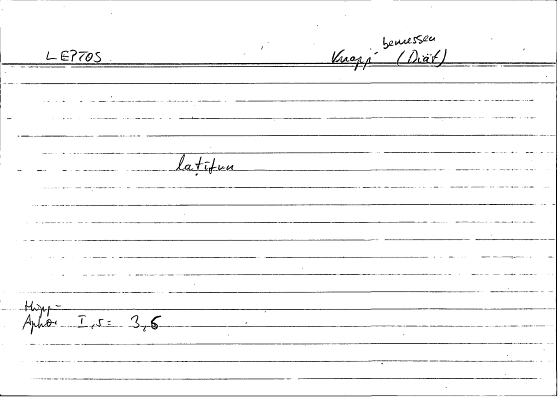 LEPTOS
bemessen
Knapp (Diät)
laṭīfun
Hipp-
Aphor I, 5 = 3,6